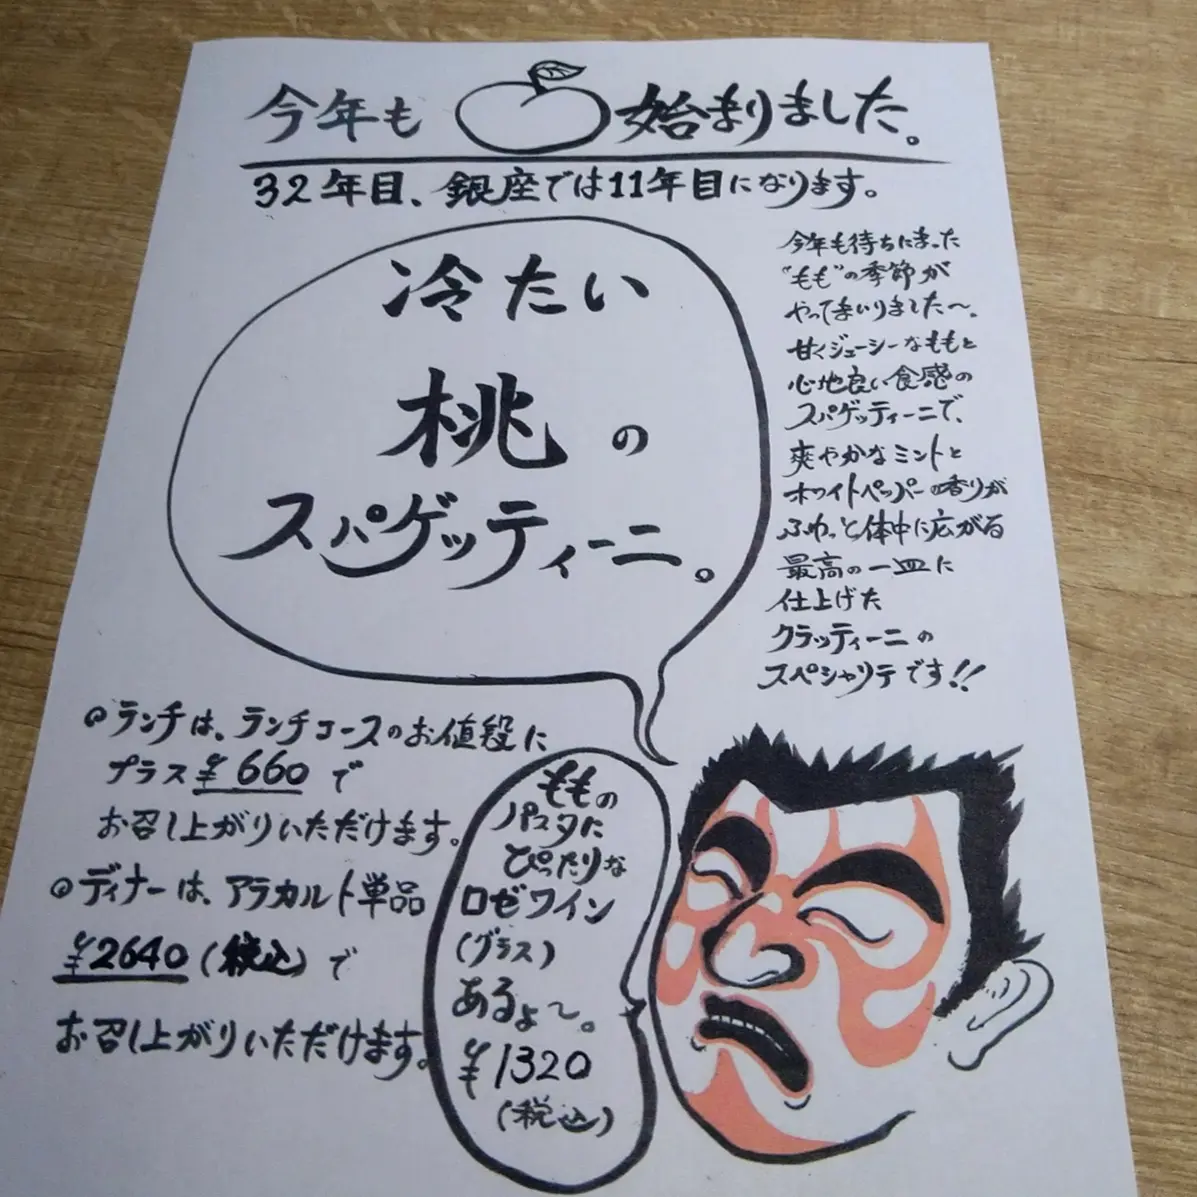 今年も 始まりました。
32年目、銀座では11年目になります。
冷たい
桃の
スパゲッティーニ。
今年も待ちにまった
"もも"の季節が
やってまいりました〜。
甘くジューシーなももと
心地良い食感の
スパゲッティーニで、
爽やかなミントと
ホワイトペッパーの香りが
ふわっと体中に広がる
最高の一皿に
仕上げた
クラッティーニの
スペシャリテです!!
ランチは、ランチコースのお値段に
プラス¥660で
お召し上がりいただけます。
ディナーは、アラカルト単品
¥2640(税込)で
お召し上がりいただけます。
ももの
パスタに
ぴったりな
ロゼワイン
(グラス)
あるよ〜。
¥1320
(税込)